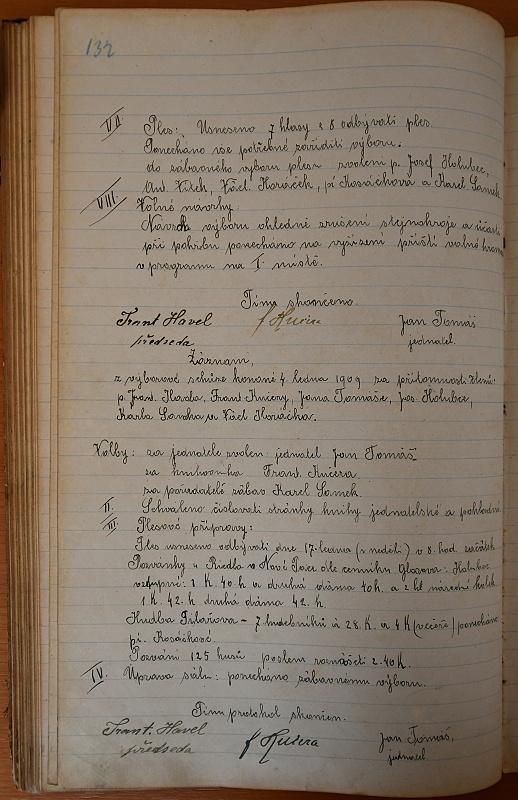 132
VII. Ples: Usneseno 7 hlasy z 8 odbývati ples.
Ponecháno vše potřebné zaříditi výboru.
do zábavného výboru plesu zvoleni p. Josef Holubec,
Ant. Vích, Václ. Horáček, pí Kosáčková a Karel Samek
VIII Volné návrhy
Návrh výboru ohledně zrušení stejnokroje a účasti
při pohřbu ponecháno na vyřízení příští valné hromadě
v programu na I. místě.
Tím skončeno.
Frant Havel
předseda
f Kučera
Jan Tomáš
jednatel.
Záznam,
z výborové schůze konané 4. ledna 1909 za přítomnosti členů:
p. Frant. Havla, Frant Kučery, Jana Tomáše, Jos. Holubce,
Karla Samka a Václ Horáčka.
Volby: za jednatele zvolen: jednatel Jan Tomáš
za knihovníka Frant. Kučera
za pořadatele zábav Karel Samek.
II. Schváleno číslovati stránky knihy jednatelské a pokladní
III. Plesové přípravy:
Ples usneseno odbývati dne 17. ledna (v neděli) v 8. hod. začátek
Pozvánky u Riedla v Nové Pace dle cenníku Holubec
vstupné: 1 K. 40 h. a druhá dáma 40 h. a 2 h. národní kolek
1 K. 42. h druhá dáma 42. h.
Hudba - 7 hudebníků à 28 K. a 4 K (večeře) ponecháno
pí. Kosáčkové.
Pozvání 125 kusů poslem roznášeti 2.40 K.
IV. Úprava sálu: ponecháno zábavnému výboru.
Tím protokol skončen.
Frant. Havel
předseda
f Kučera
Jan Tomáš,
jednatel